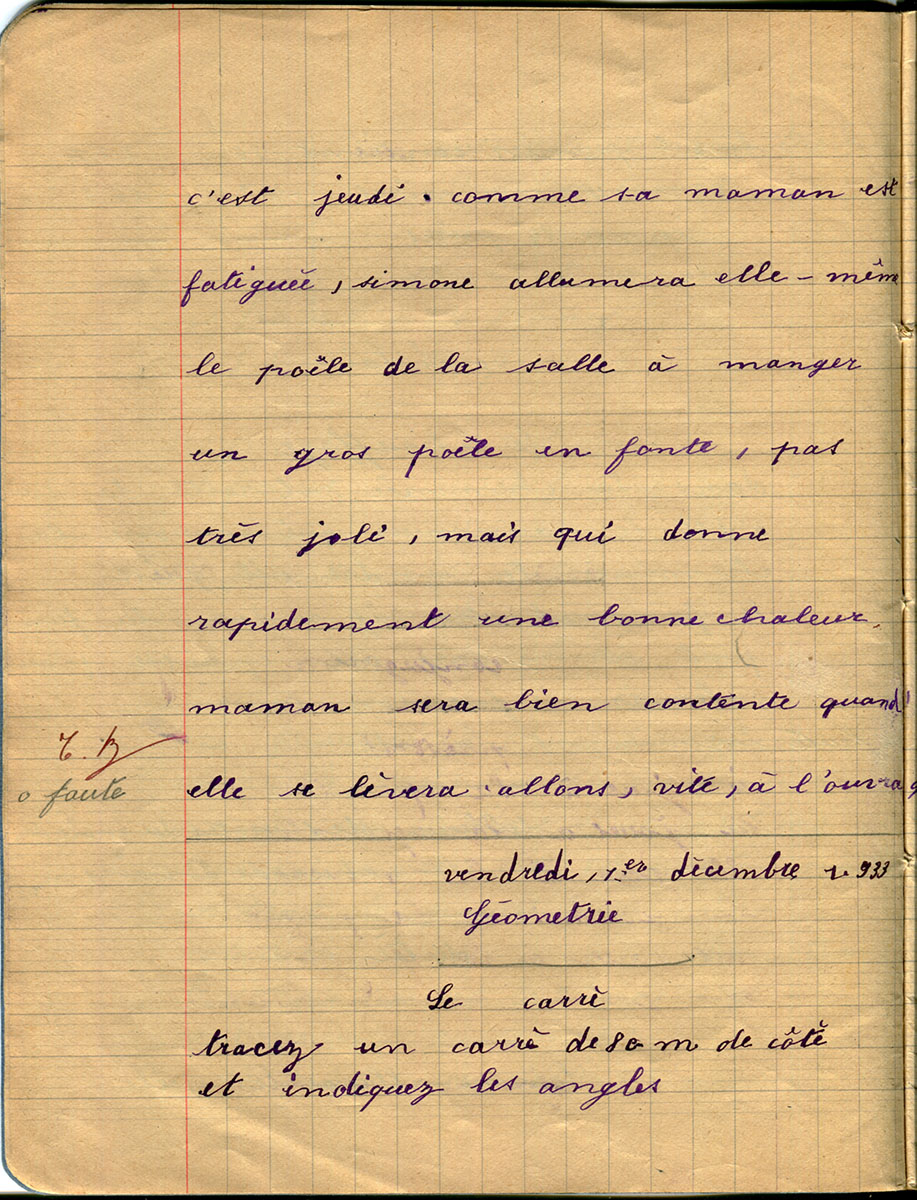 c'est jeudi. comme sa maman est
fatiguée, simone allumera elle-même
le poêle de la salle à manger
un gros poêle en fonte, pas
très joli, mais qui donne
rapidement une bonne chaleur,
maman sera bien contente quand
T. B
elle se lèvera. allons, vite, à l'ouvrag
0 faute
vendredi, 1er décembre 1.933
Géometrie
Le carré
tracez un carré de 8 cm de côté
et indiquez les angles